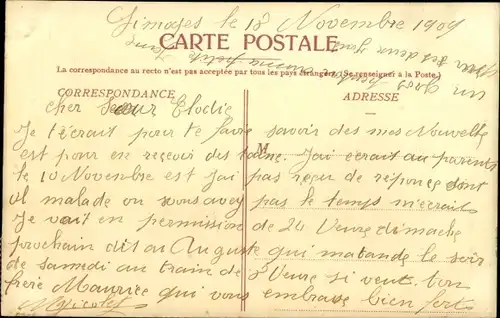 Limoges le 18 Novembre 1909
CARTE POSTALE
La correspondance au recto n'est pas acceptée par tous les pays étrangers. (Se renseigner à la Poste.)
CORRESPONDANCE
ADRESSE
cher Sœur Elodie
Je t'écrait pour te faire savoir des mes Nouvelle
est pour en reçevoi des tienne. J'ai écrait au parents
M
le 10 Novembre est J'ai pas reçu de réponse sont
il malade ou vous avez pas le temps m'écrait
Je vait en permission de 24 Heure dimache
prochain dit au Auguste qui matande le soir
de samedi au train de 8 Heure si veut. ton
frère Maurice qui vous embrasse bien fort